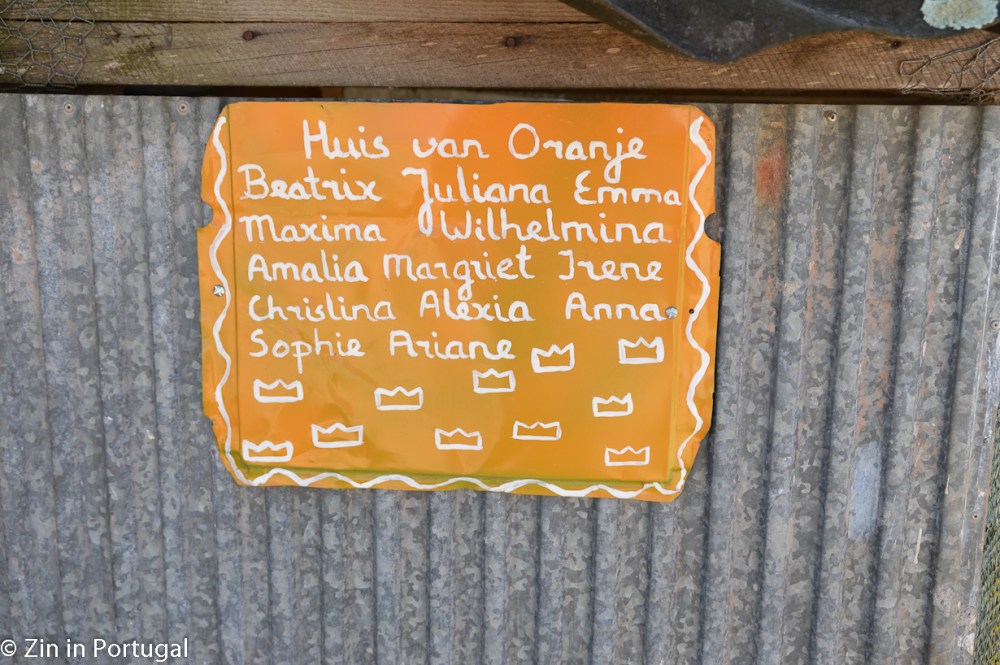 Huis van Oranje
Beatrix Juliana Emma
Maxima Wilhelmina
Amalia Margriet Irene
Christina Alexia Anna
Sophie Ariane
© Zin in Portugal